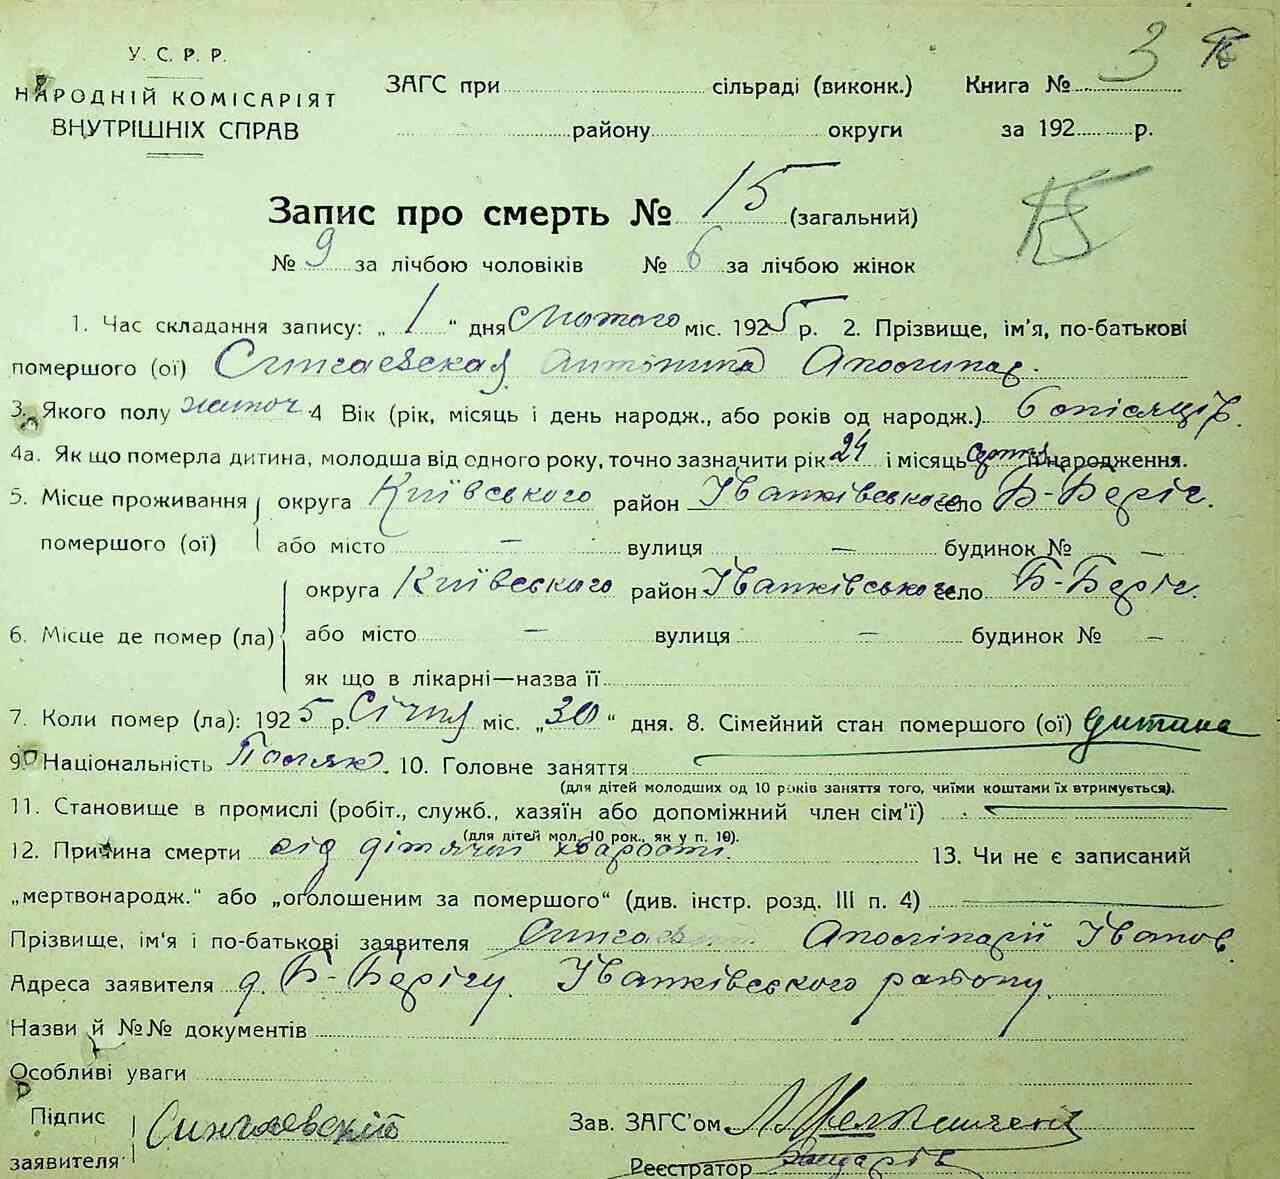 У. С. Р. Р.
НАРОДНІЙ КОМІСАРІЯТ
ВНУТРІШНІХ СПРАВ
ЗАГС при сільраді (виконк.) Книга № 3
району округи за 192 р.
Запис про смерть № 15 (загальний)
№ 9 за лічбою чоловіків № 6 за лічбою жінок
1. Час складання запису: „ 1 “ дня Лютого міс. 1925 р. 2. Прізвище, ім’я, по-батькові
помершого (ої) Сингаевская Антонина Аполинар.
3. Якого полу жиноч. 4 Вік (рік, місяць і день народж., або років од народж.) 6 місяців.
4а. Як що померла дитина, молодша від одного року, точно зазначити рік 24 і місяць її народження.
5. Місце проживання помершого (ої) округа Київського район Іванківського село Б-Беріг.
або місто — вулиця — будинок № —
6. Місце де помер (ла) округа Київського район Іванківського село Б-Беріг.
або місто — вулиця — будинок № —
як що в лікарні—назва її
7. Коли помер (ла): 1925 р. Січня міс. „30“ дня. 8. Сімейний стан помершого (ої) дитина
9. Національність Поляк. 10. Головне заняття
(для дітей молодших од 10 років заняття того, чиїми коштами їх втримується).
11. Становище в промислі (робіт., служб., хазяїн або допоміжний член сім’ї)
(для дітей мол. 10 рок., як у п. 10).
12. Причина смерти від дітячой хварости. 13. Чи не є записаний
„мертвонародж.“ або „оголошеним за помершого“ (див. інстр. розд. III п. 4)
Прізвище, ім’я і по-батькові заявителя Аполінарій Іванов.
Адреса заявителя д. Б-Берігу Іванківського району.
Назви й №№ документів
Особливі уваги
Підпис заявителя Сингаевский Зав. ЗАГС’ом
Реєстратор